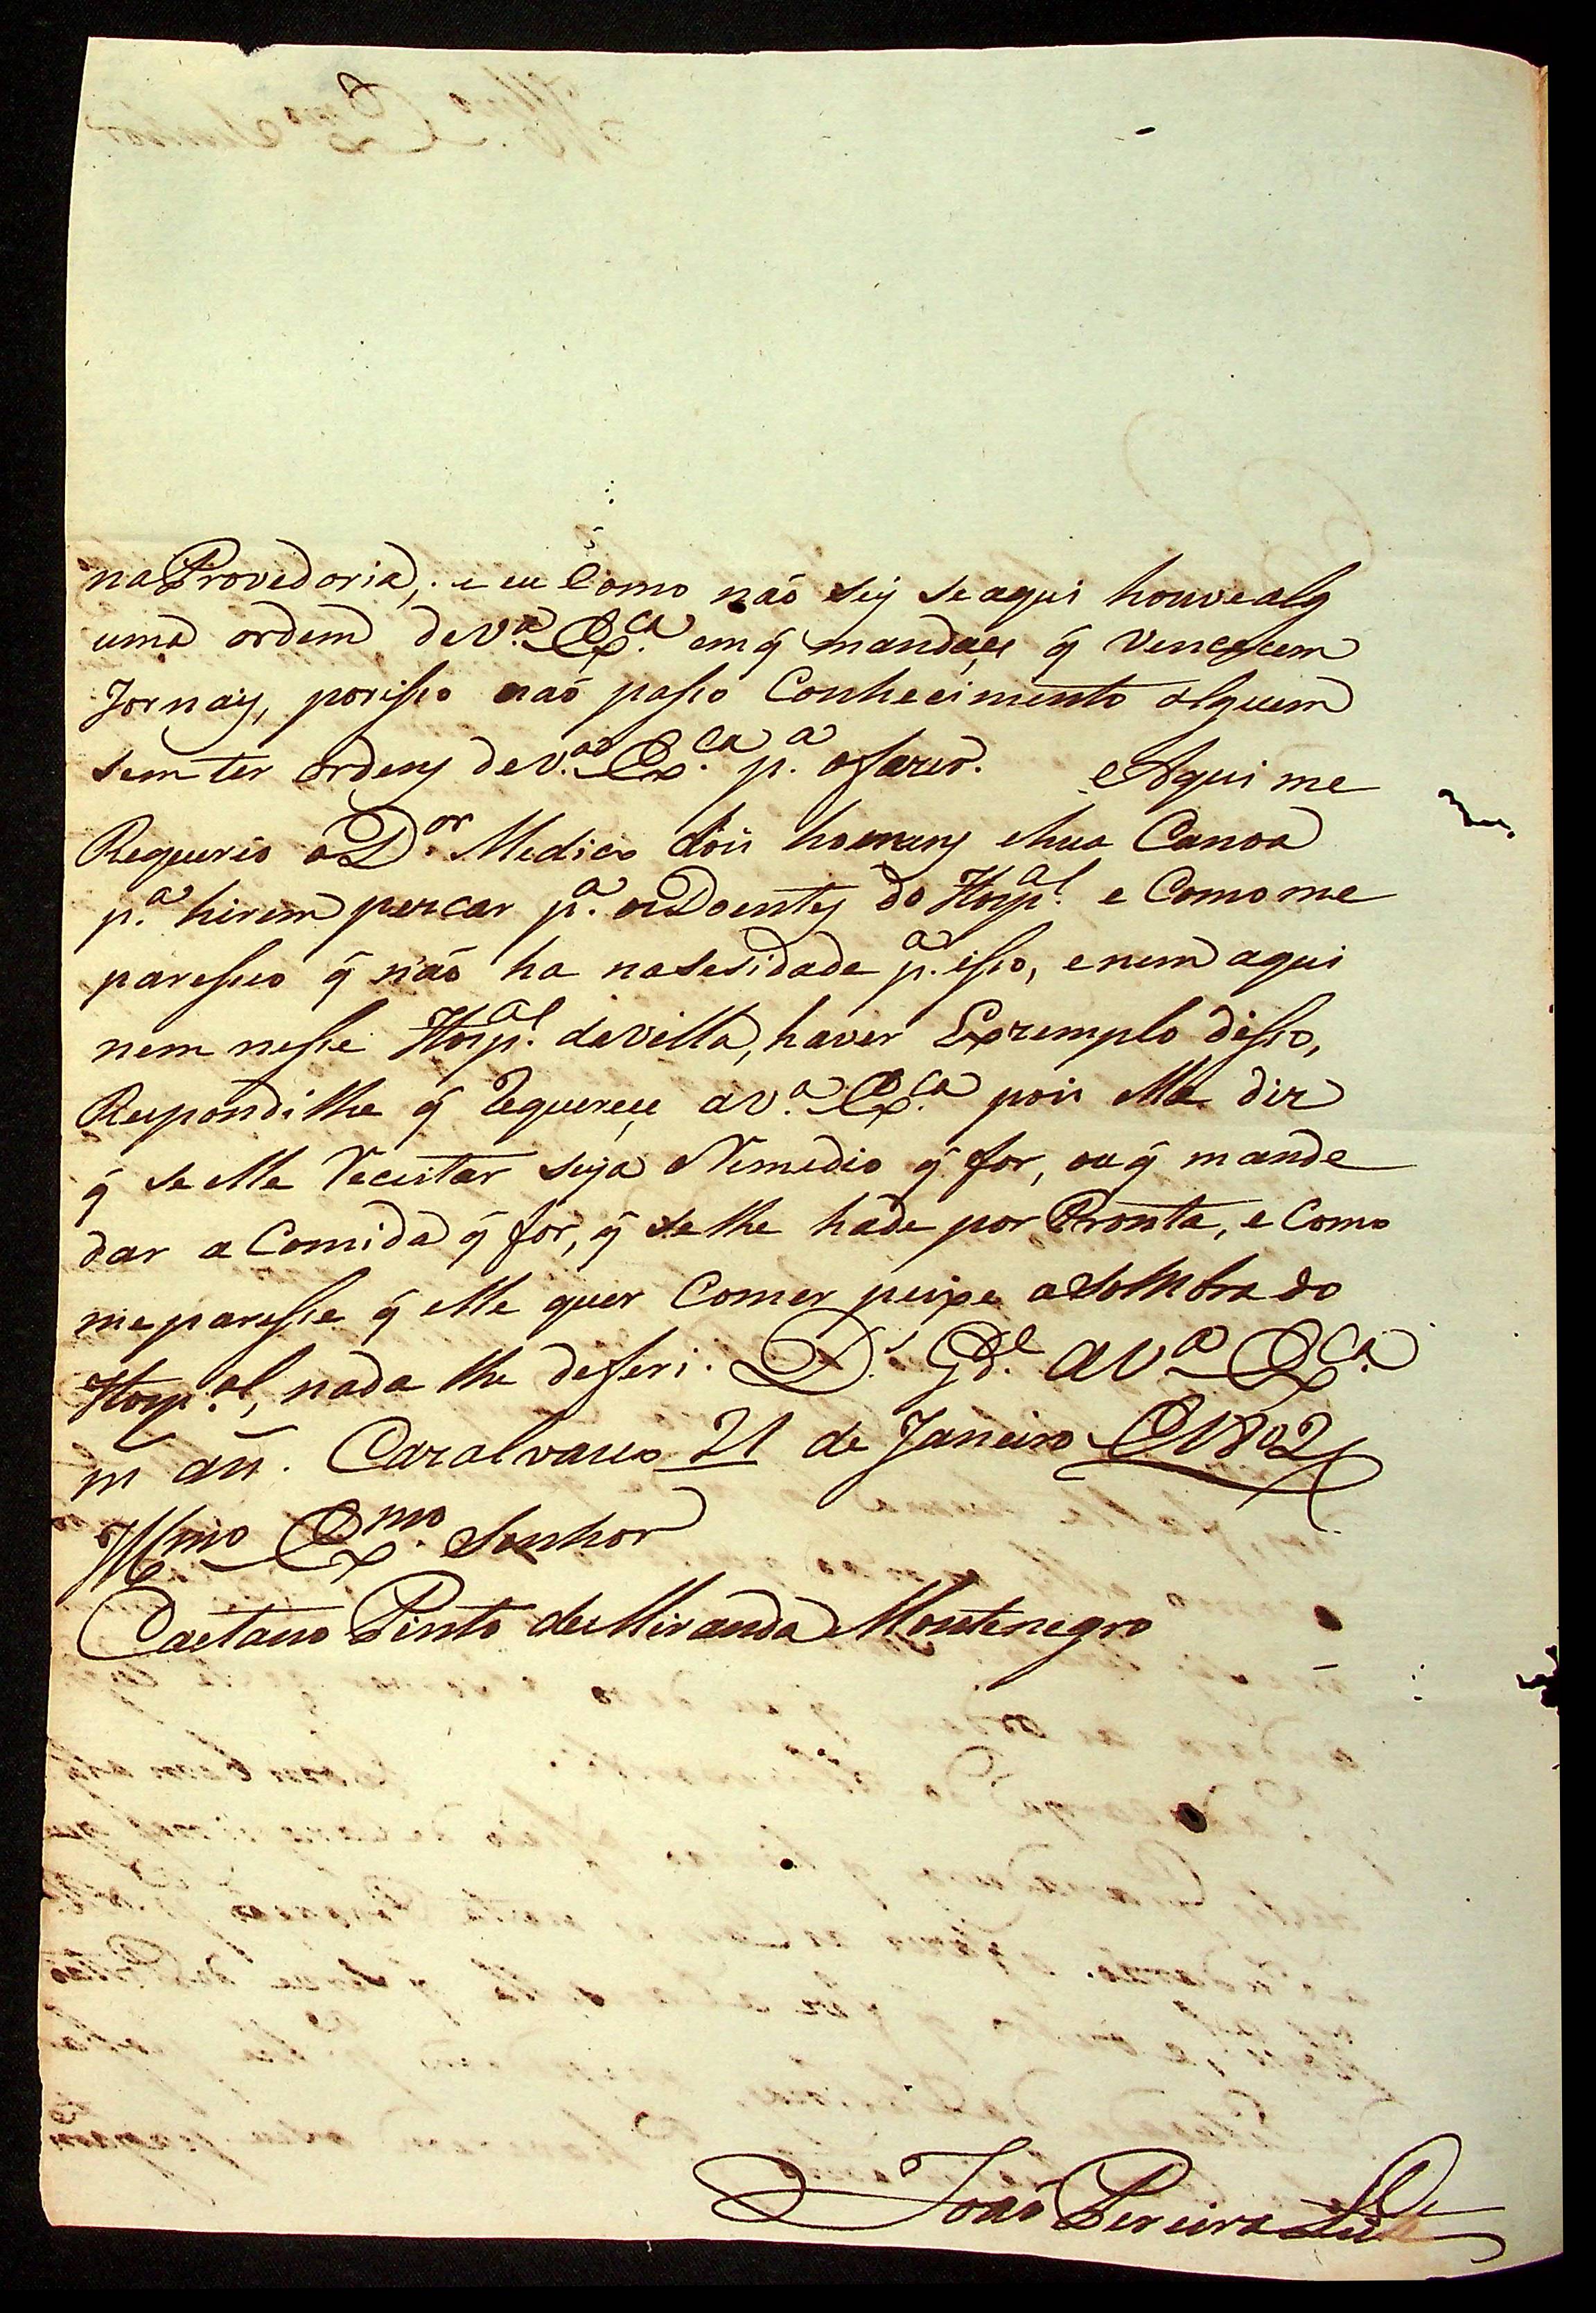 na Provedoria; e eu Como naõ sey se aqui houve alg
uma ordem de V.ª Ex.ca em q̃ mandaçe q̃ Vencesem
Jornays, porisso naõ passo Conhecimento alguem
sem ter ordens de V.ª Ex.ca p.ª o fazer. e Aqui me
Requerio o D.or Medico dois homens e hua Canoa
p.ª hirem pescar p.ª os Doentes do Hosp.al e Como me
paresseo q̃ não ha nasesidade p.ª isso, e nem aqui
nem nesse Hosp.al da Villa, haver Exzemplo disso,
Respondi lhe q̃ Requereçe a V.ª Ex.ca pois elle diz
q̃ se elle Receitar seja Remedio q̃ for, ou q̃ mande
dar a Comida q̃ for, q̃ se lhe hade por Pronta, e Como
me paresse q̃ elle quer Comer peixe a Sombra do
Hosp.al, nada lhe deferi. D.s G.de a V.ª Ex.ca
m an.s Cazalvasco 21 de Janeiro D 1802
Ill.mo Ex.mo Senhor
Caetano Pinto de Miranda Montenegro
Joaõ Pereira Leite